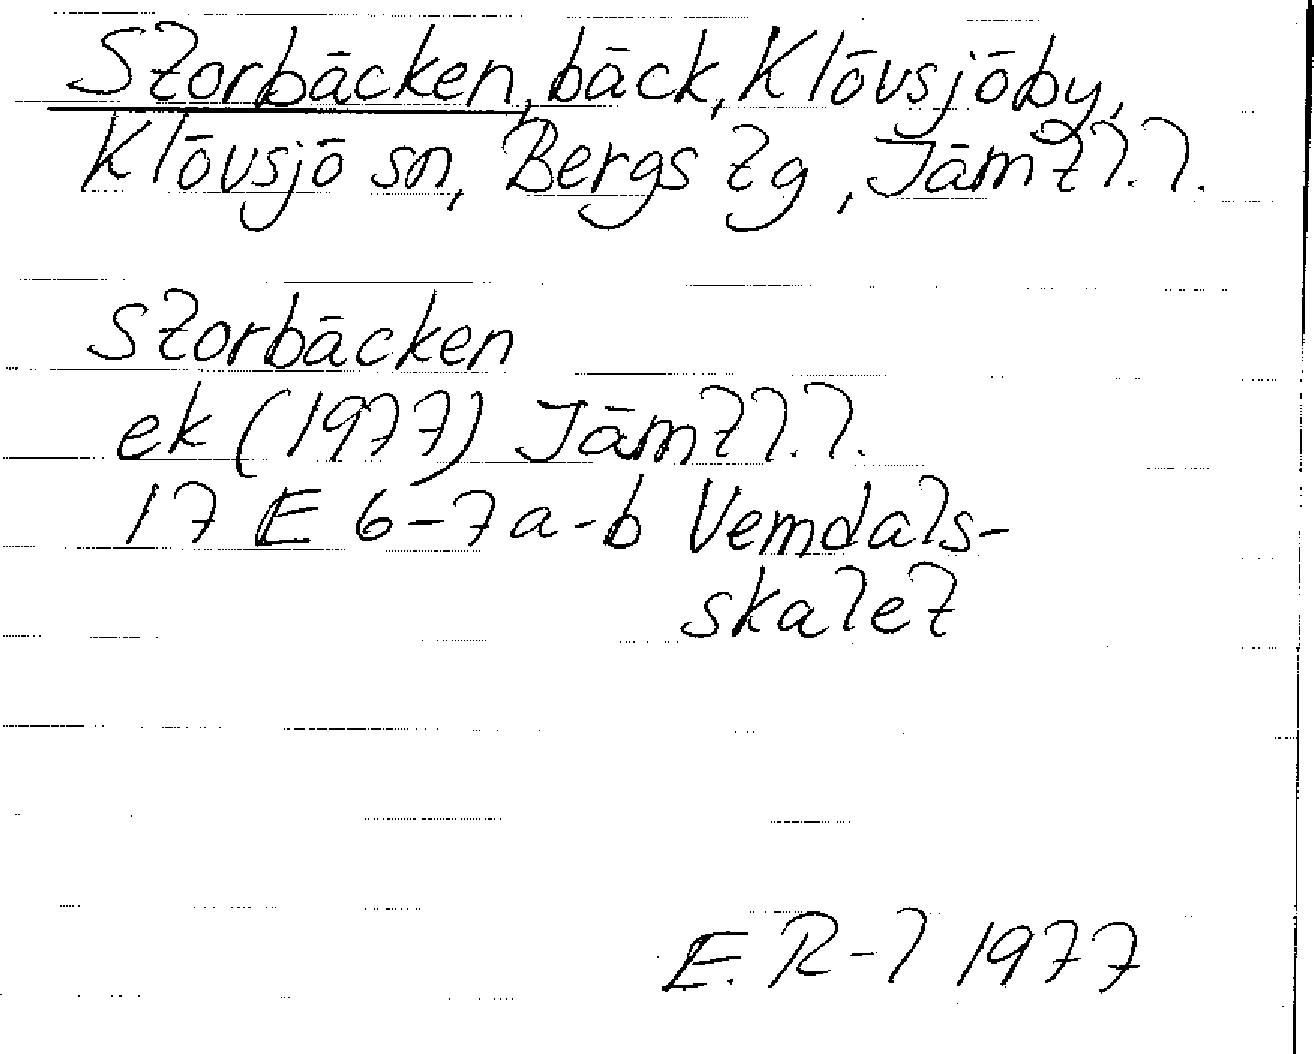 Storbäcken, bäck, Klövsjöby,
Klövsjö sn, Bergs tg, Jämtl.l.
Storbäcken
ek (1977) Jämtl.l.
17 E 6-7 a-b Vemdals-
skalet
E. R-l 1977